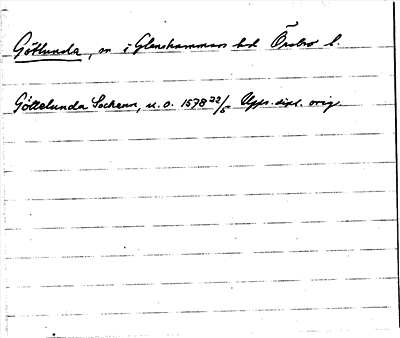 Götlunda, sn i Glanshammars hd Örebro l.
Göttelunda Sochenn, u. o. 1578 22/5 Upps. dipl. orig.